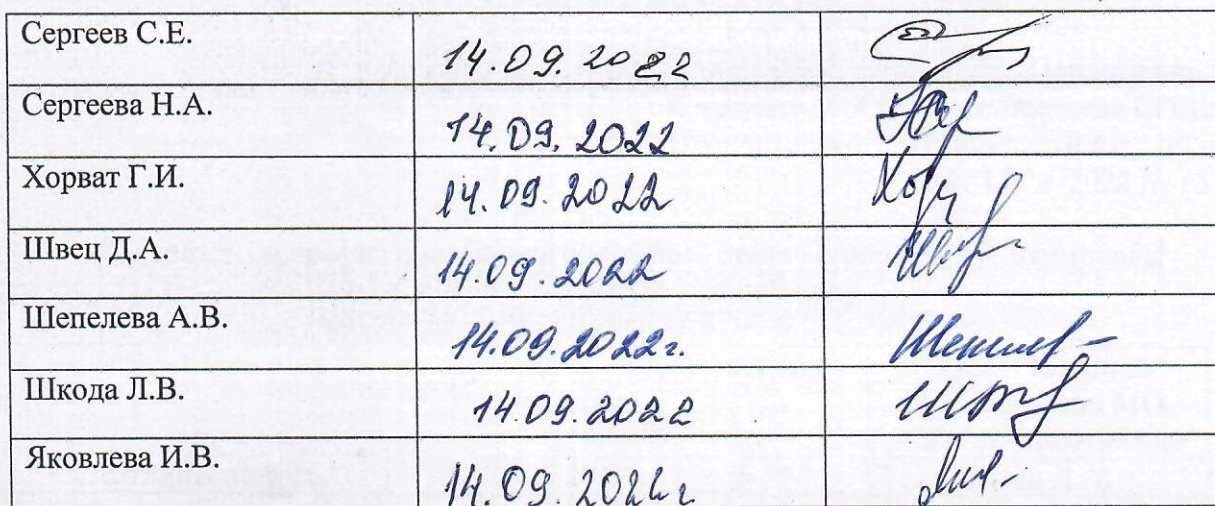 Сергеев С.Е. 14.09.2022
Сергеева Н.А. 14.09.2022
Хорват Г.И. 14.09.2022
Швец Д.А. 14.09.2022
Шепелева А.В. 14.09.2022г.
Шкода Л.В. 14.09.2022
Яковлева И.В. 14.09.2022г